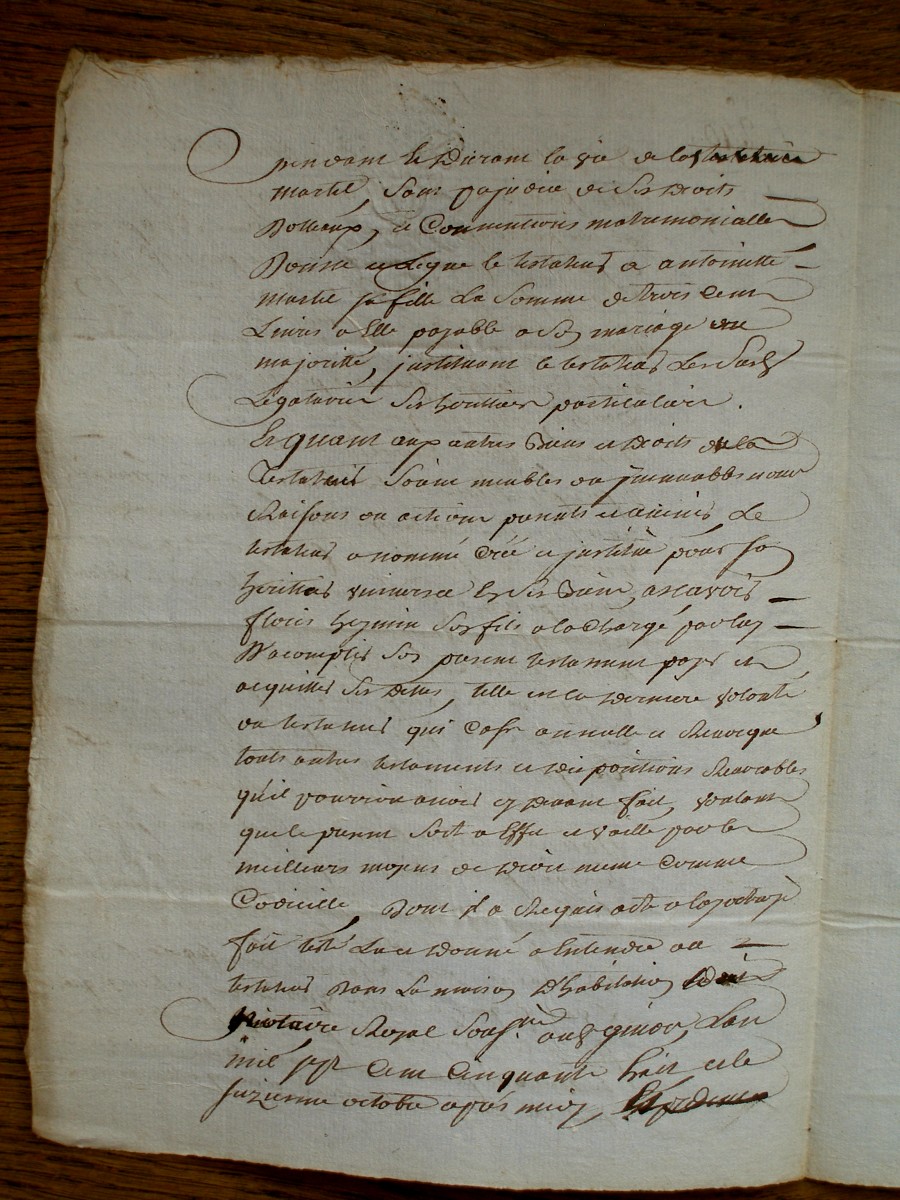 pendant et durant la vie de la
martel, sans prejudice de ses droits
Dotteaux, et Conventions matrimonialle
Donne et Legue le testateur a antoinette
martel sa fille La Somme de trois Cent
Livres a Elle payable a son mariage ou
majoritté, instituant le testateur Les susd
Legataires ses heritiers particuliers.
Et quant aux autres Biens et Droits de la
testateur soient meubles ou immeubles noms
Raisons ou actions presents et avenirs Le
testateur a nommé Créé et institué pour son
heritier universel En ses Biens, ascavoir
son fils a la Charge par luy
D'acomplir son present testament payer et
acquitter ses dettes, telle est la derniere volonté
du testateur qui Casse annulle et Revoque
touts autres testaments et dispositions Revocables
qu'il pourroit avoir cy devant fait, voulant
que le present sort a Effet et vaille par les
meilleurs moyens de droit meme Comme
Codicille Dont il a Requis acte a
fait leu et donné a Entendre au
testateur Dans La maison D'habitation
Notaire Royal Soussigné L'an
mil sept Cent Cinquante huit et le
octobre apres midy,